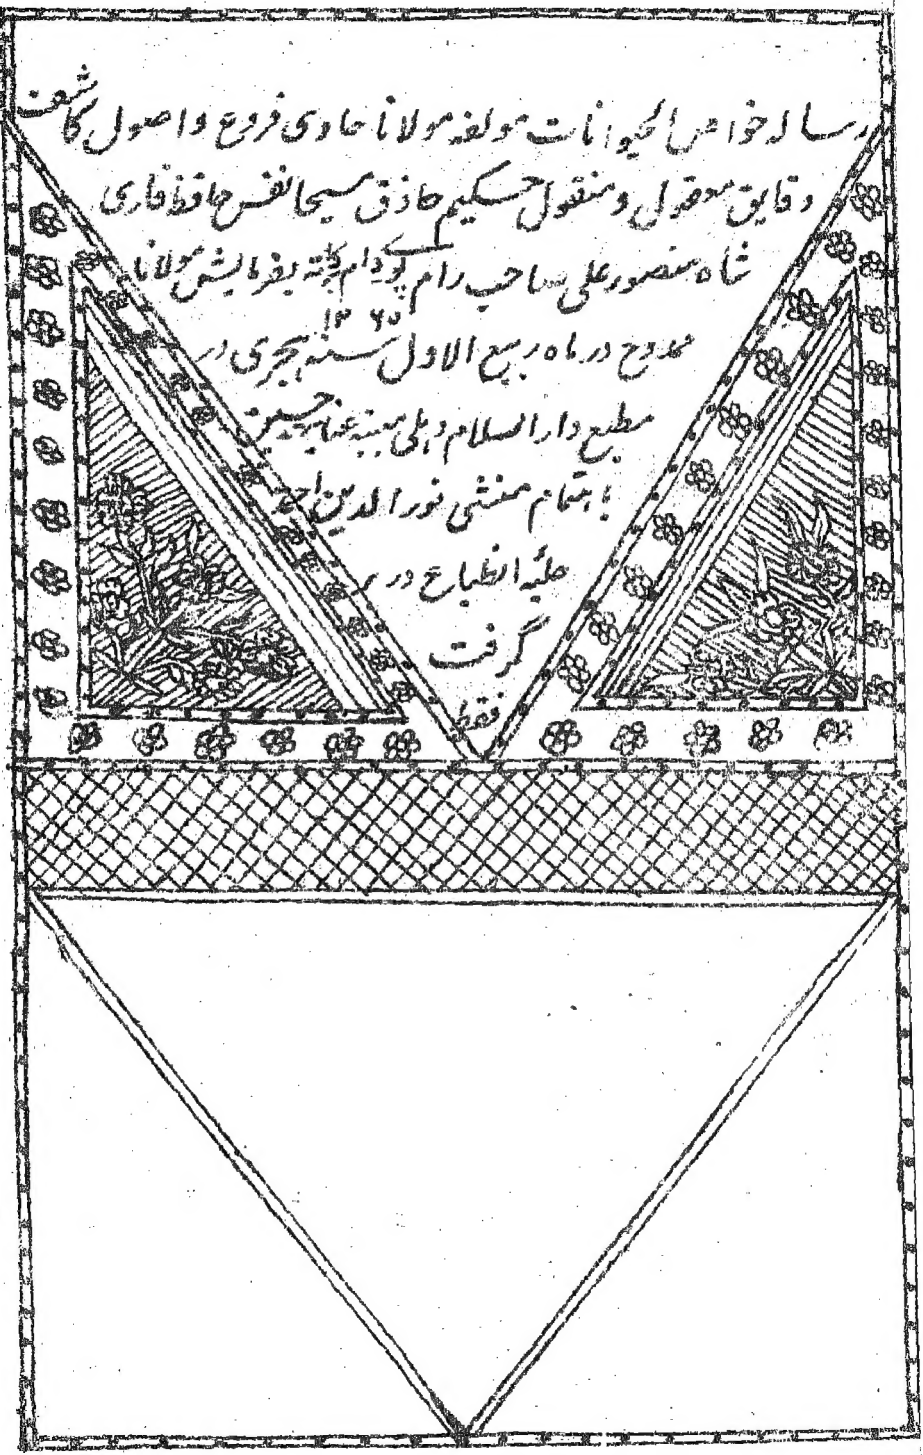 رسالہ خواص الحیوانات مولفہ مولانا حاوی فروع و اصول کاشف
دقایق معقول و منقول حکیم حاذق مسیحا نفس حافظ قاری
شاہ منصور علی صاحب دام بفرمایش مولانا
ممدوح در ماہ ربیع الاول سنہ ۱۲۶۵ ہجری در
مطبع دار السلام دہلی حسین
باہتمام منشی نور الدین احمد
حلیۂ انطباع در بر
گرفت
فقط